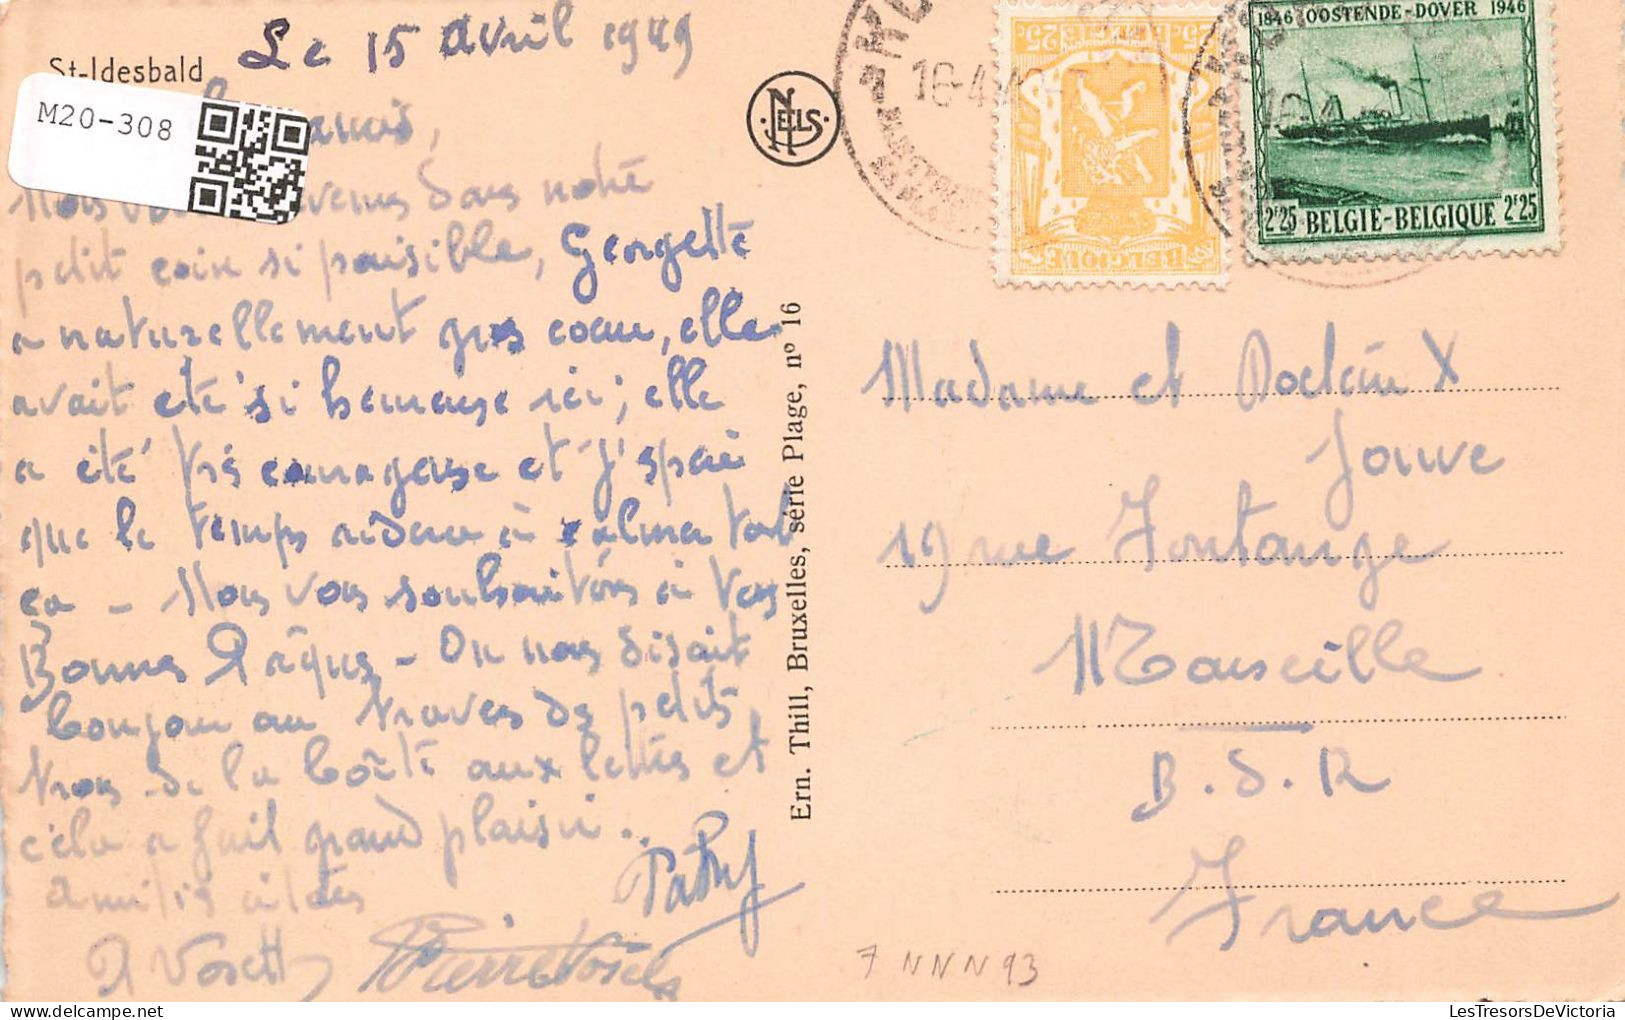 St-Idesbald
Le 15 Avril 1949
M20-308
NELS
Nous venus dans notre
petit coin si paisible, Georgette
a naturellement gros coeur, elle
avait été si heureuse ici; elle
a été très courageuse et j'
que le temps aidera à calmer tout
ça - Nous vous souhaitons à tous
Bonnes Pâques - On nous disait
bonjour au travers de petits
trous de la boîte aux lettres et
cela a fait grand plaisir.
Amitiés à tous
Ern. Thill, Bruxelles, série Plage, nº 16
16-4
25c
BELGIQUE
1846 OOSTENDE-DOVER 1946
2F25 BELGIE-BELGIQUE 2F25
Madame et Docteur
Jouve
19 rue Fontange
Marseille
B.d.R
France
7 NNN93
LesTresorsDeVictoria
delcampe.net